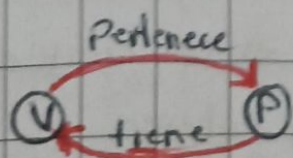 Pertenece
V
P
tiene